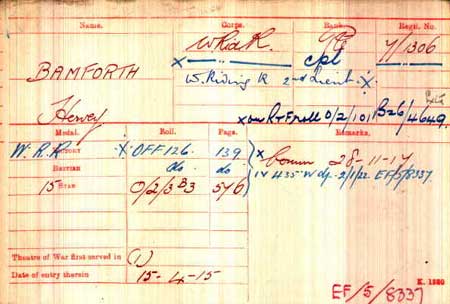 Name. Corps. Rank. Regtl. No.
W Rid R. cpl 4/1306
BAMFORTH W. Riding R 2nd Lieut. x
Henry x on R+F roll O/2/101 B26/4649
Medal. Roll. Page. Remarks.
W.R.R VICTORY x OFF 126. 139 x Comm 28-11-17
BRITISH do do IV 435 W dy - 2/1/22. EF/5/8337.
15 STAR O/2/3 B3 576
Theatre of War first served in (1)
Date of entry therein 15-4-15
EF/5/8337 K. 1380